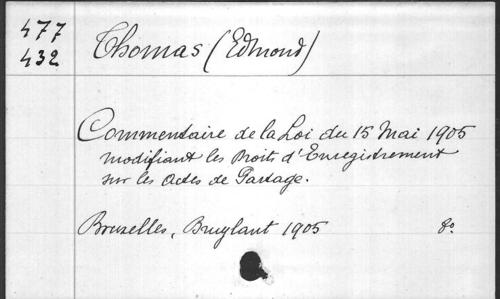 477
432
Thomas (Edmond)
Commentaire de la Loi du 15 Mai 1905
modifiant les Droits d'Enregistrement
sur les Actes de Partage.
Bruxelles, Bruylant 1905 8o.